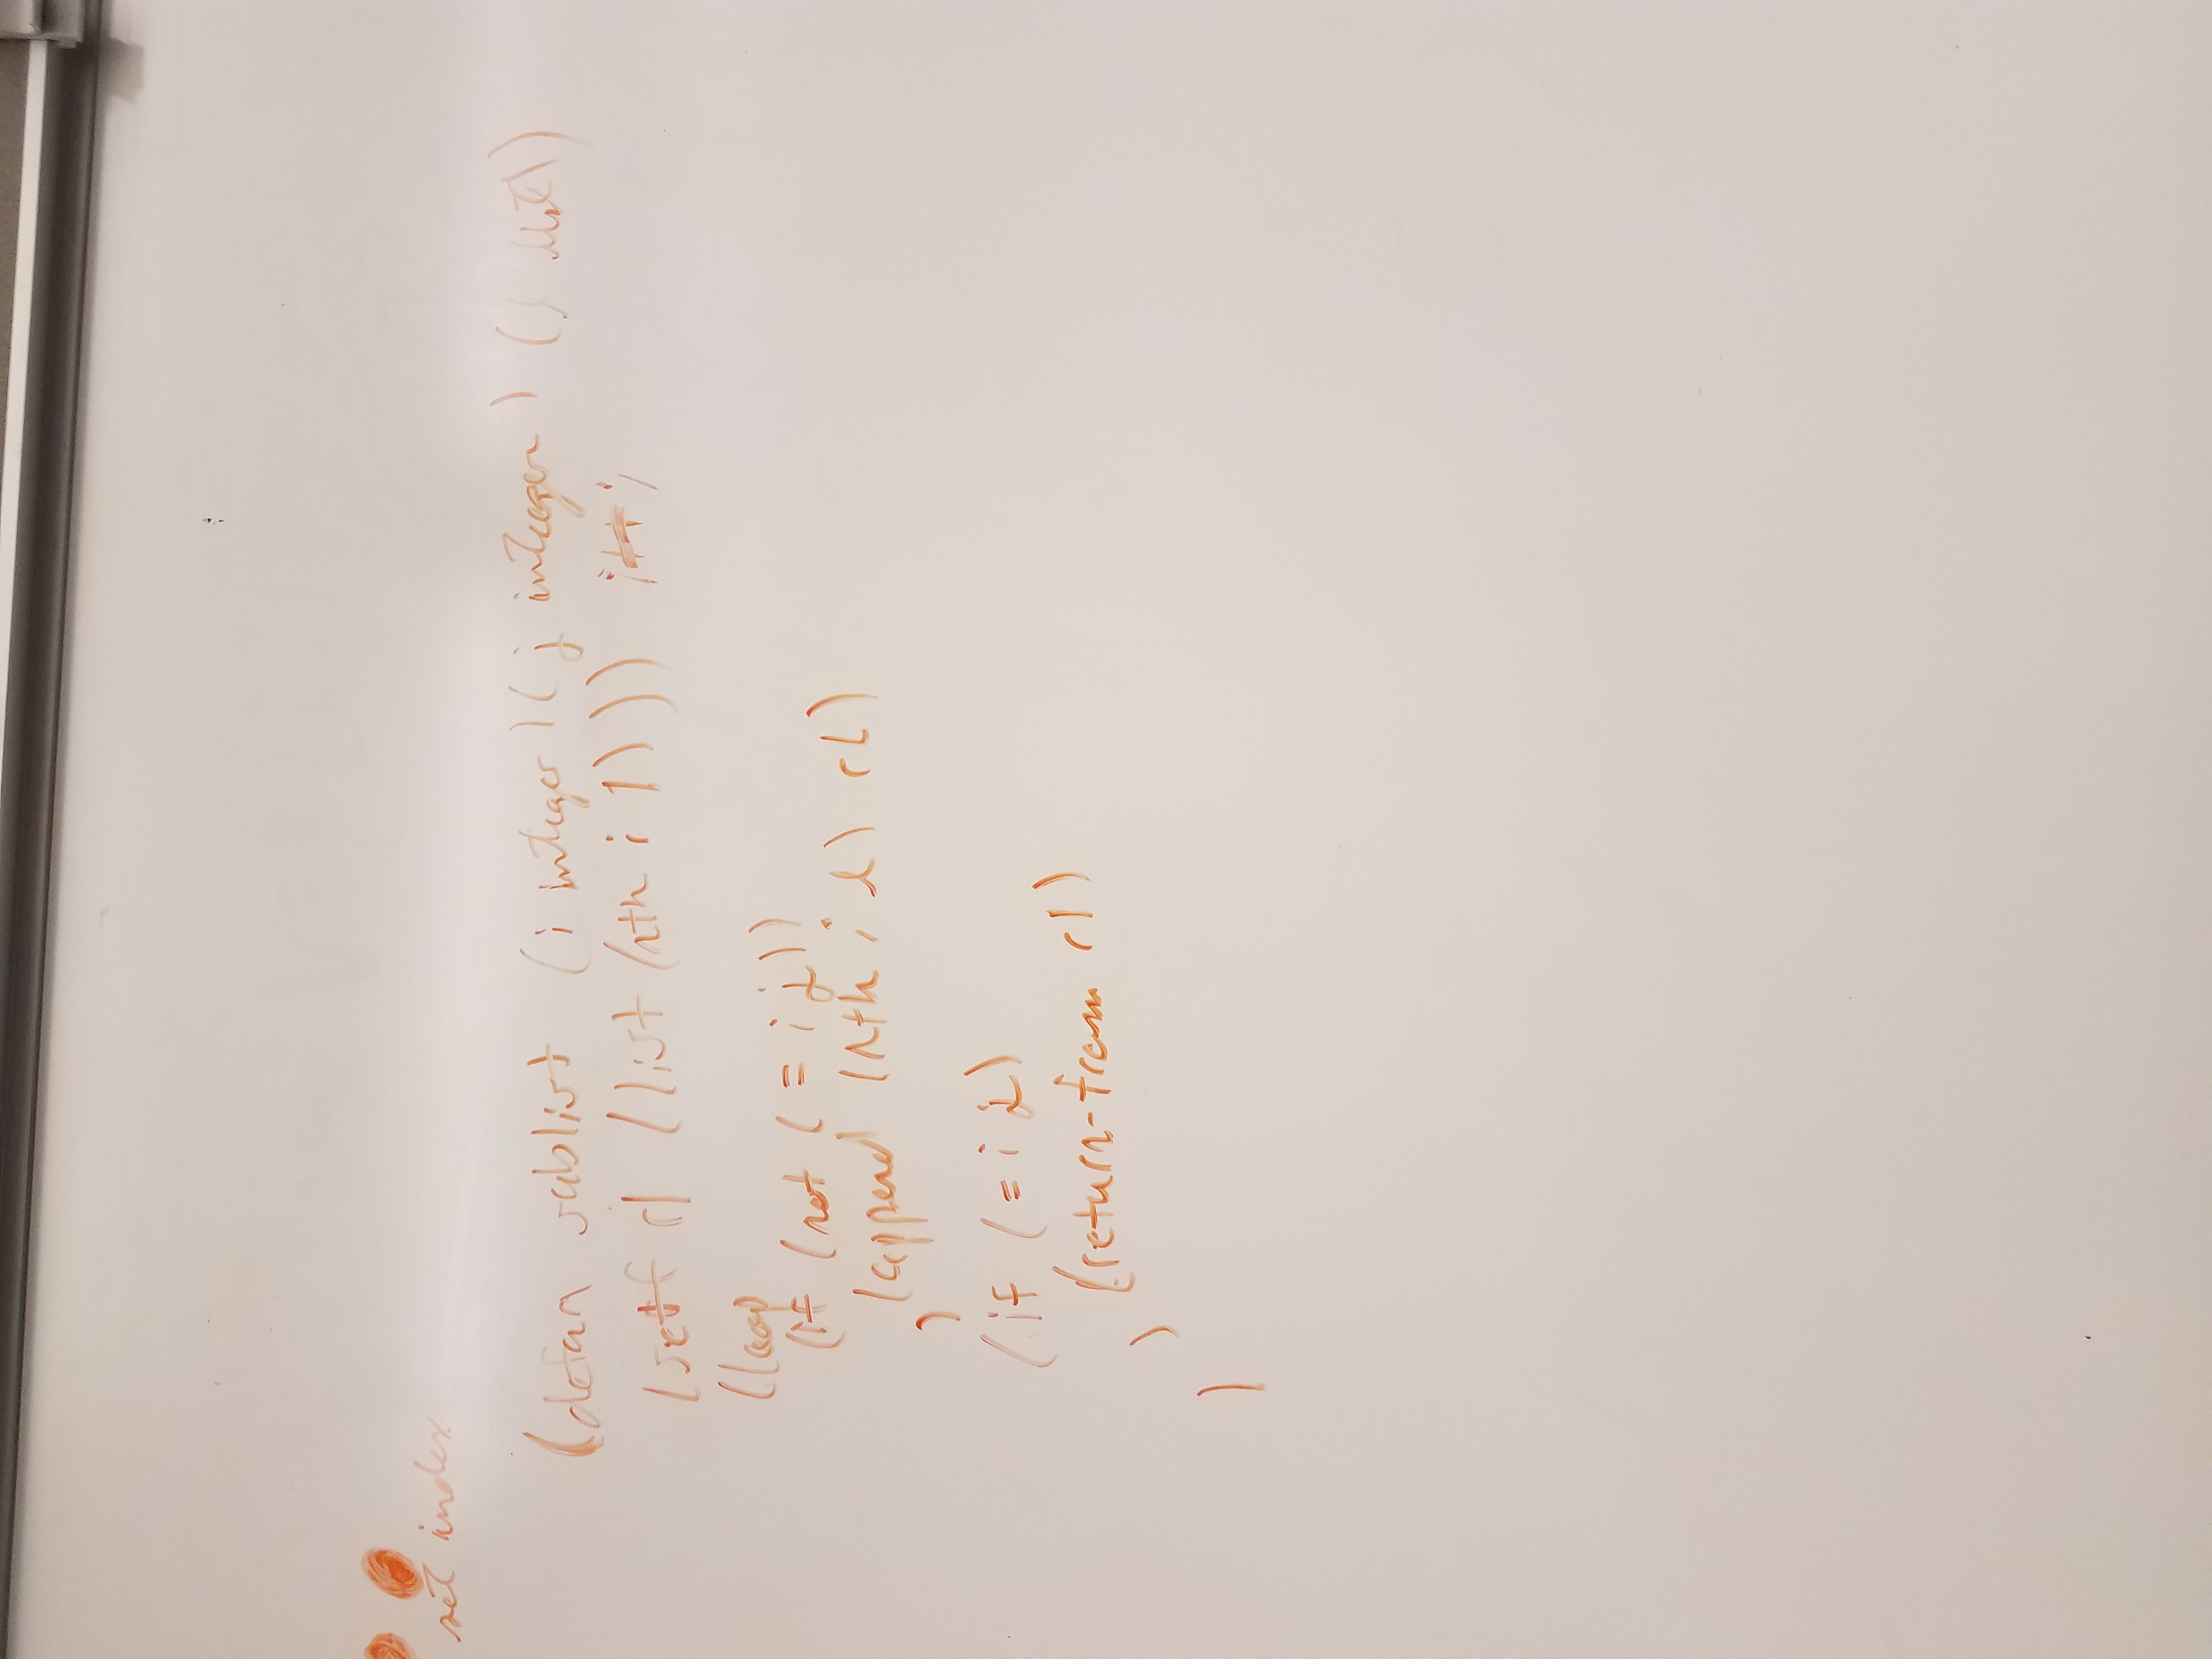 set index
(defun sublist (i integer) (j integer) (l list)
(setf rl (list (nth i l))) i++;
(loop
(if (not (= i j))
(append (nth i l) rl)
)
(if (= i j)
(return-from rl)
)
)